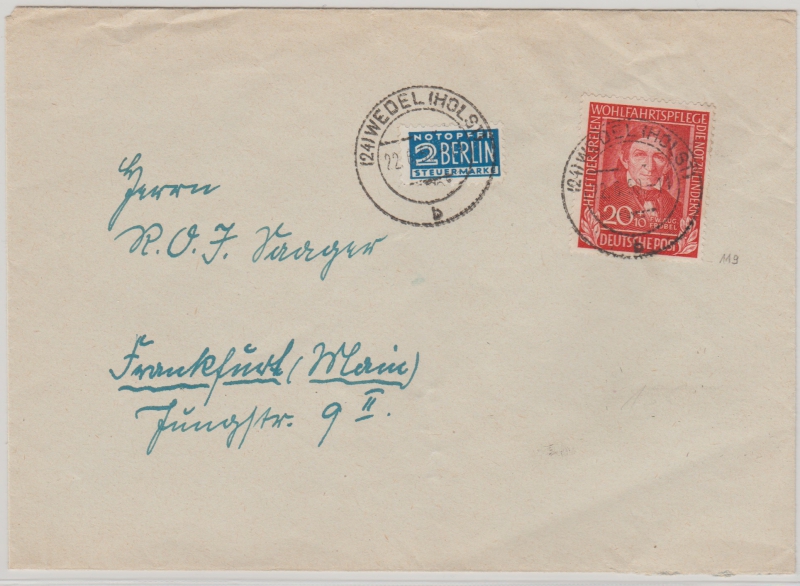 (24) WEDEL (HOLST)
22.
b
NOTOPFER
2 BERLIN
STEUERMARKE
HELFT DER FREIEN WOHLFAHRTSPFLEGE DIE NOT ZU LINDERN
20+10
FR. W. AUG. FRÖBEL
DEUTSCHE POST
(24) WEDEL (HOLST)
119
Herrn
R.O.J. Saager
Frankfurt (Main)
Jungstr. 9 II.